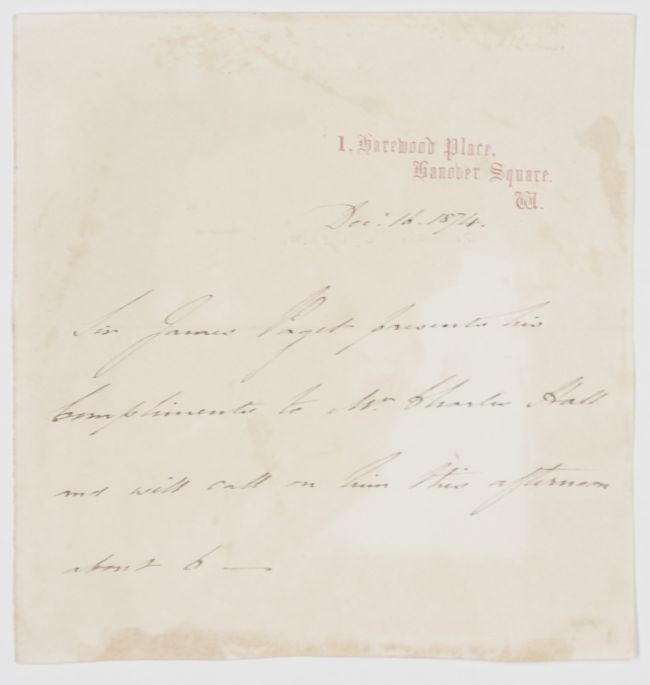 1. Harewood Place,
Hanover Square.
W.
Dec: 16. 1874.
Sir James Paget presents his
compliments to Mr Charles Hall
and will call on him this afternoon
about 6 —